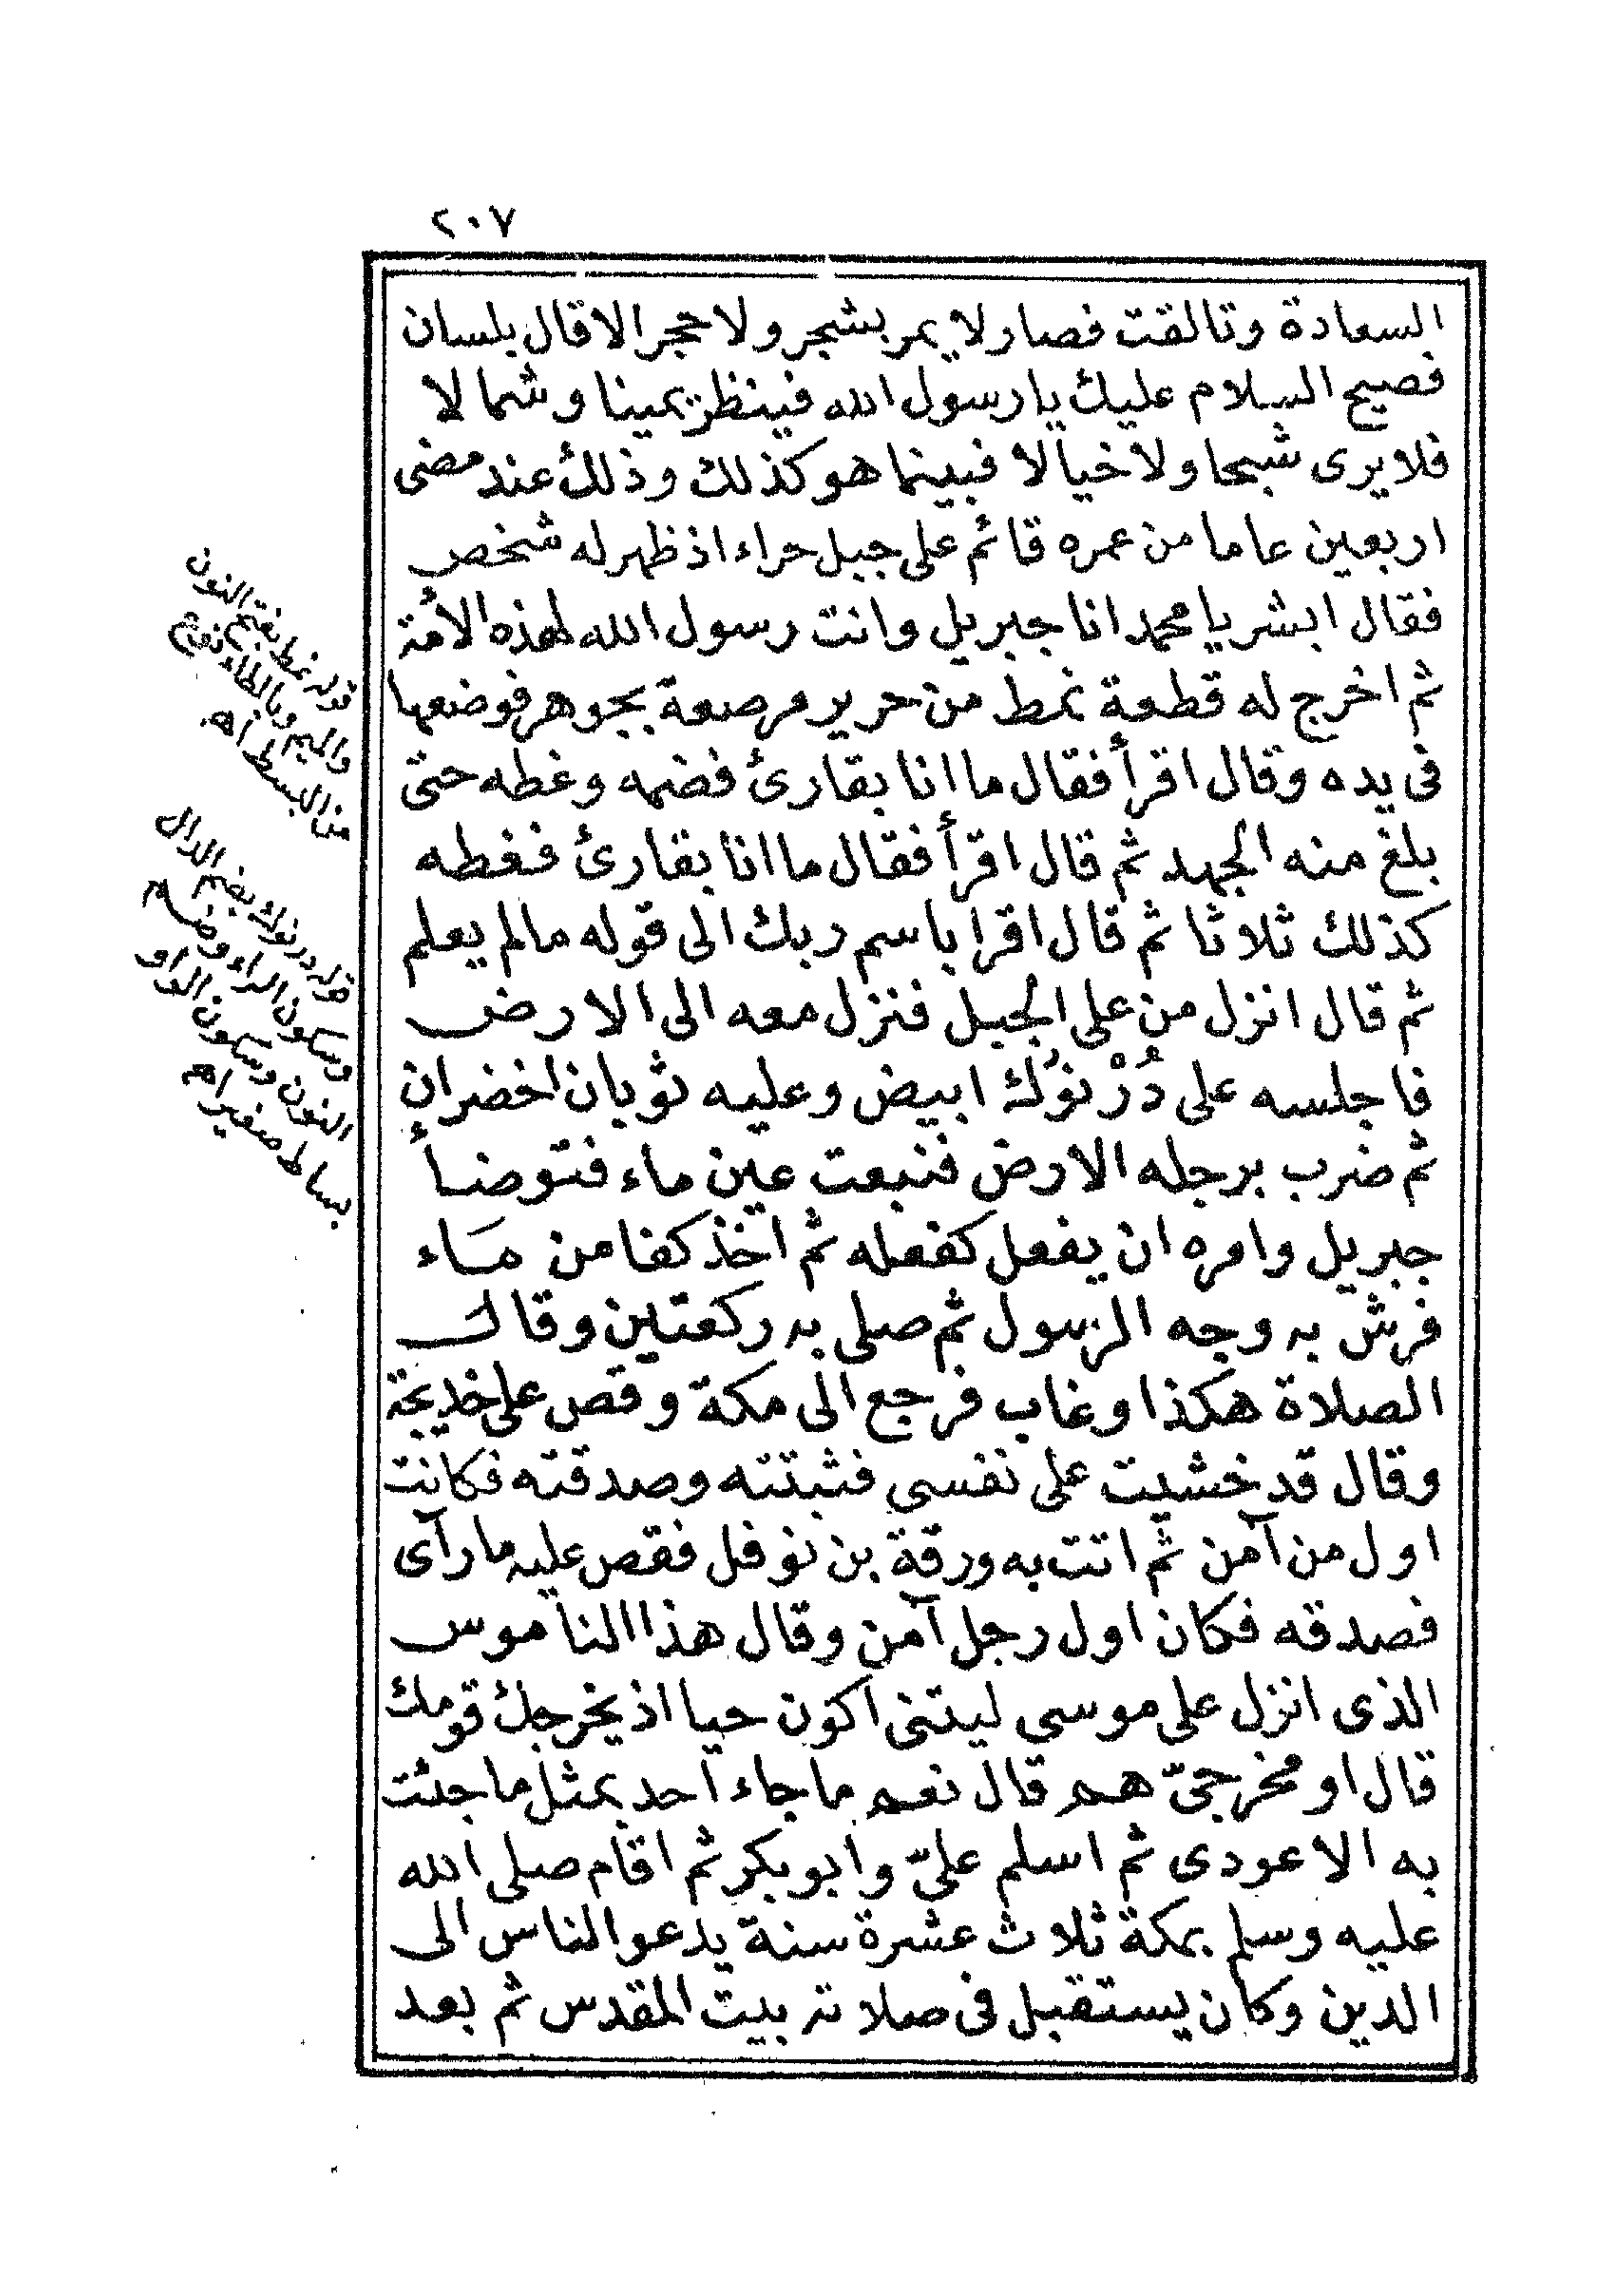 ٢٠٧
السعادة وتالقت فصار لا يمر بشجر ولا حجر الا قال بلسان
فصيح السلام عليك يا رسول الله فينظر يمينا وشمالا
فلا يرى شبحا ولا خيالا فبينما هو كذلك وذلك عند مضى
اربعين عاما من عمره قائم على جبل حراء اذ ظهر له شخص
فقال ابشر يا محمد انا جبريل وانت رسول الله لهذه الأمة
ثم اخرج له قطعة نمط من حرير مرصعة بجوهر فوضعها
فى يده وقال اقرأ فقال ما انا بقارئ فضمه وغطه حتى
بلغ منه الجهد ثم قال اقرأ فقال ما انا بقارئ فغطه
كذلك ثلاثا ثم قال اقرا باسم ربك الى قوله مالم يعلم
ثم قال انزل من على الجبل فنزل معه الى الارض
فاجلسه على دُرْنوُك ابيض وعليه ثوبان اخضران
ثم ضرب برجله الارض فنبعت عين ماء فتوضأ
جبريل وامره ان يفعل كفعله ثم اخذ كفا من مَاء
فرش به وجه الرسول ثم صلى به ركعتين وقال
الصلاة هكذا وغاب فرجع الى مكة وقص على خديجة
وقال قد خشيت على نفسى فثبتته وصدقته فكانت
اول من آمن ثم اتت به ورقة بن نوفل فقص عليه ما رآى
فصدقه فكان اول رجل آمن وقال هذا الناموس
الذى انزل على موسى ليتنى اكون حيا اذ يخرجك قومك
قال او مخرجىّ هم قال نعم ما جاء احد بمثل ما جئت
به الا عودى ثم اسلم علىّ وابو بكر ثم اقام صلى الله
عليه وسلم بمكة ثلاث عشرة سنة يدعو الناس الى
الدين وكان يستقبل فى صلاته بيت المقدس ثم بعد
قوله نمط بفتح النون
والميم وبالطاء نوع
من البسط اهـ
قوله درنوك بضم الدال
وسكون الراء وضم
النون وسكون الواو
بساط صغير اهـ